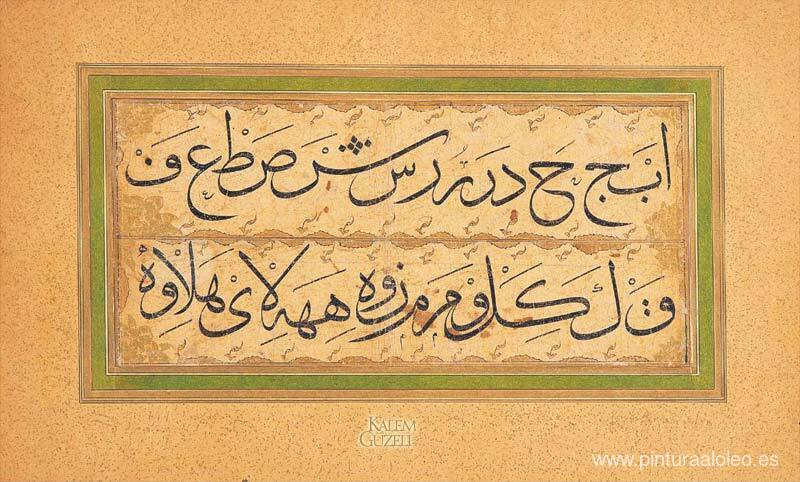 ا ب ج ح د ر ر ر س ش ص ط ع ف
ق ك كل و م م م ن و ه هه لا ى بهلاوه
KALEM
GÜZELİ
www.pinturaaloleo.es